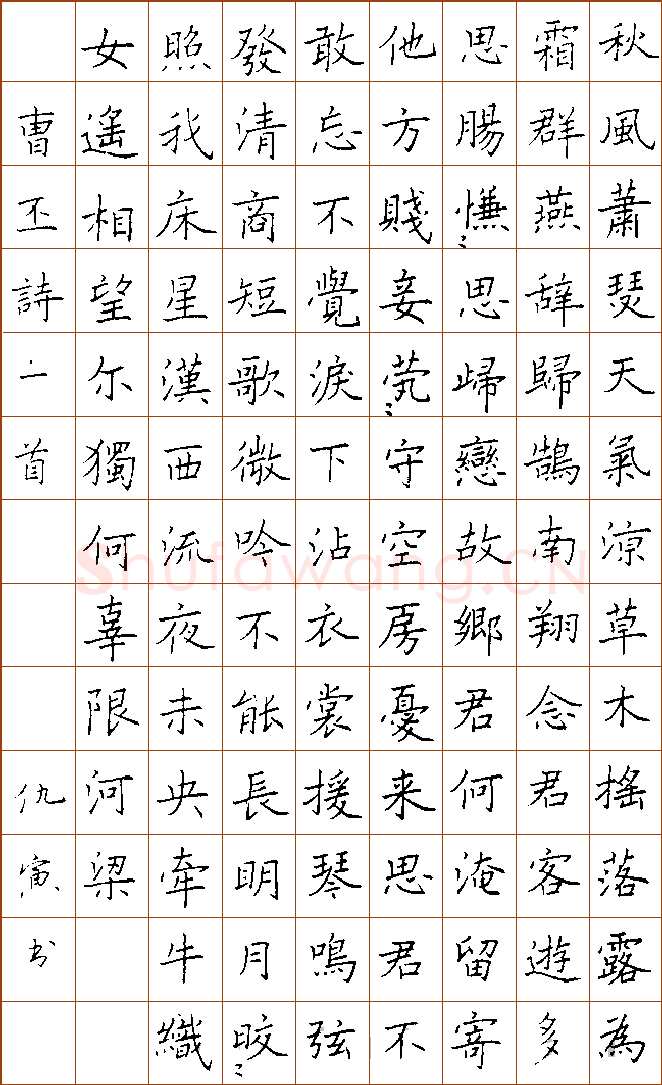 秋風蕭瑟天氣涼草木搖落露為
霜群燕辞歸鵠南翔念君客遊多
思腸慊〻思歸戀故鄉君何淹留寄
他方賤妾煢〻守空房憂来思君不
敢忘不覺淚下沾衣裳援琴鳴弦
發清商短歌微吟不能長明月皎〻
照我床星漢西流夜未央牽牛織
女遙相望尔獨何辜限河梁
曹丕詩一首 仇寅书
Shufawang.CN